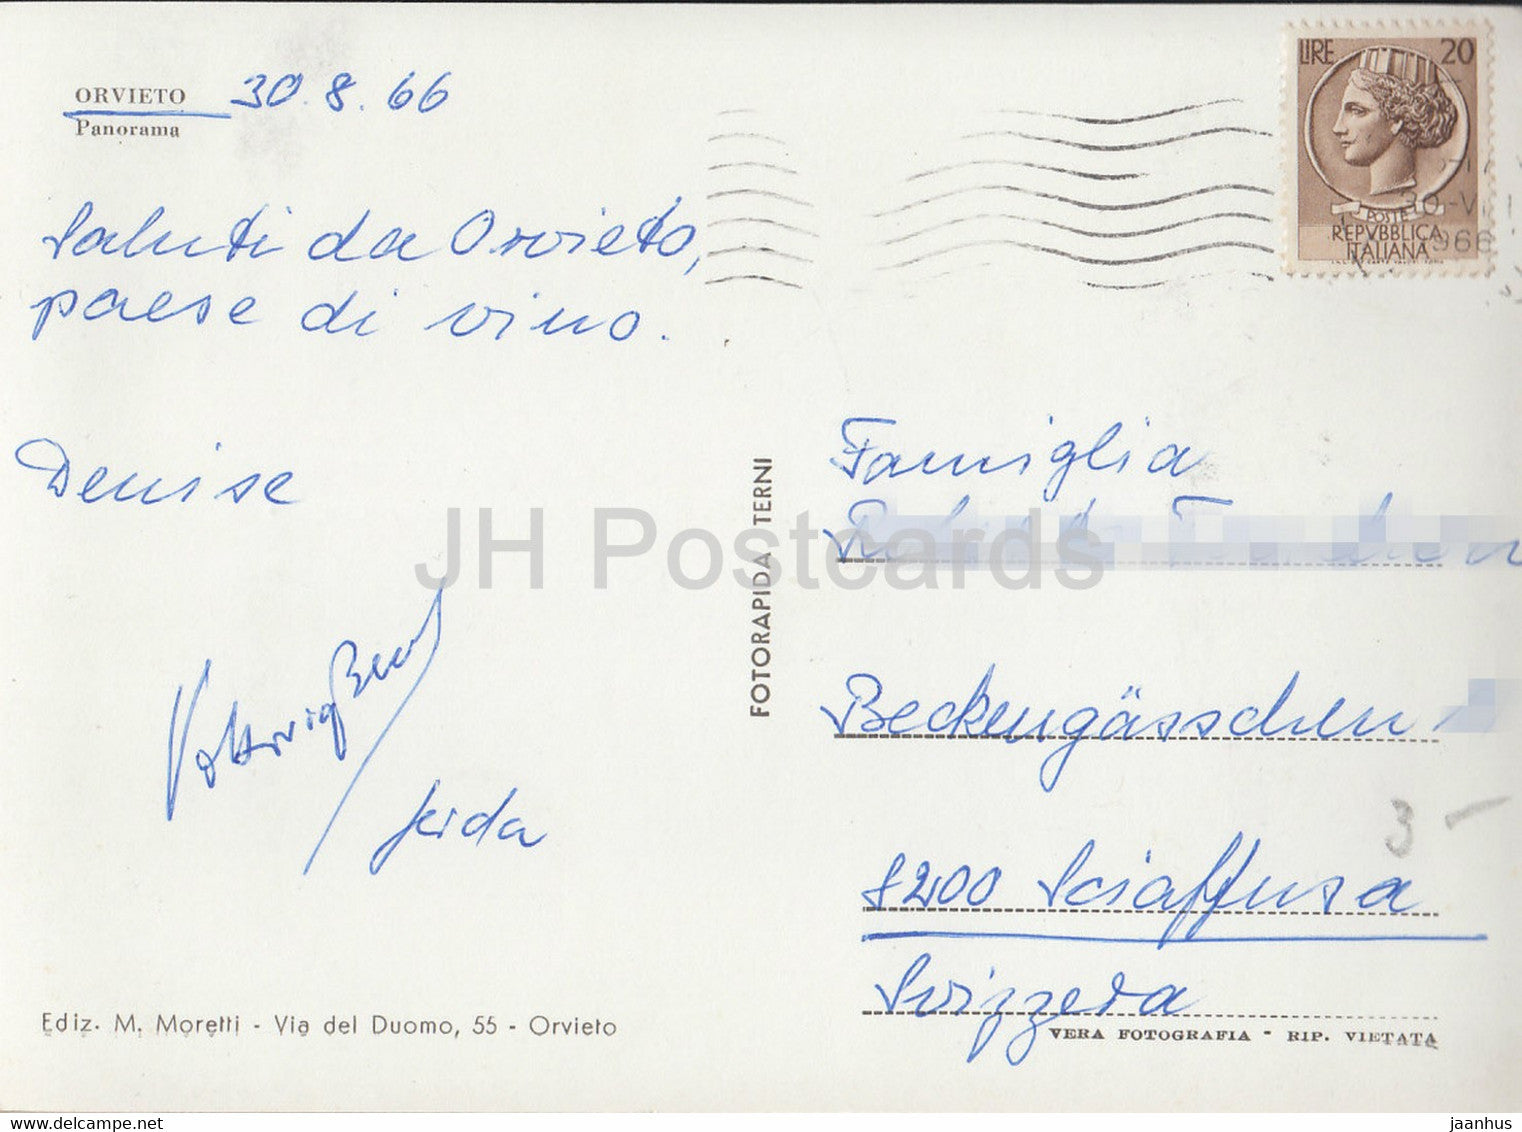 ORVIETO 30.8.66
Panorama
Saluti da Orvieto,
paese di vino.
Denise
Gerda
Ediz. M. Moretti - Via del Duomo, 55 - Orvieto
FOTORAPIDA TERNI
LIRE 20
POSTE
REPVBBLICA
ITALIANA
30-V
966
Famiglia
Beckengässchen
8200 Sciaffusa
Svizzera
3 -
VERA FOTOGRAFIA - RIP. VIETATA
JH Postcards
www.delcampe.net
jaanhus